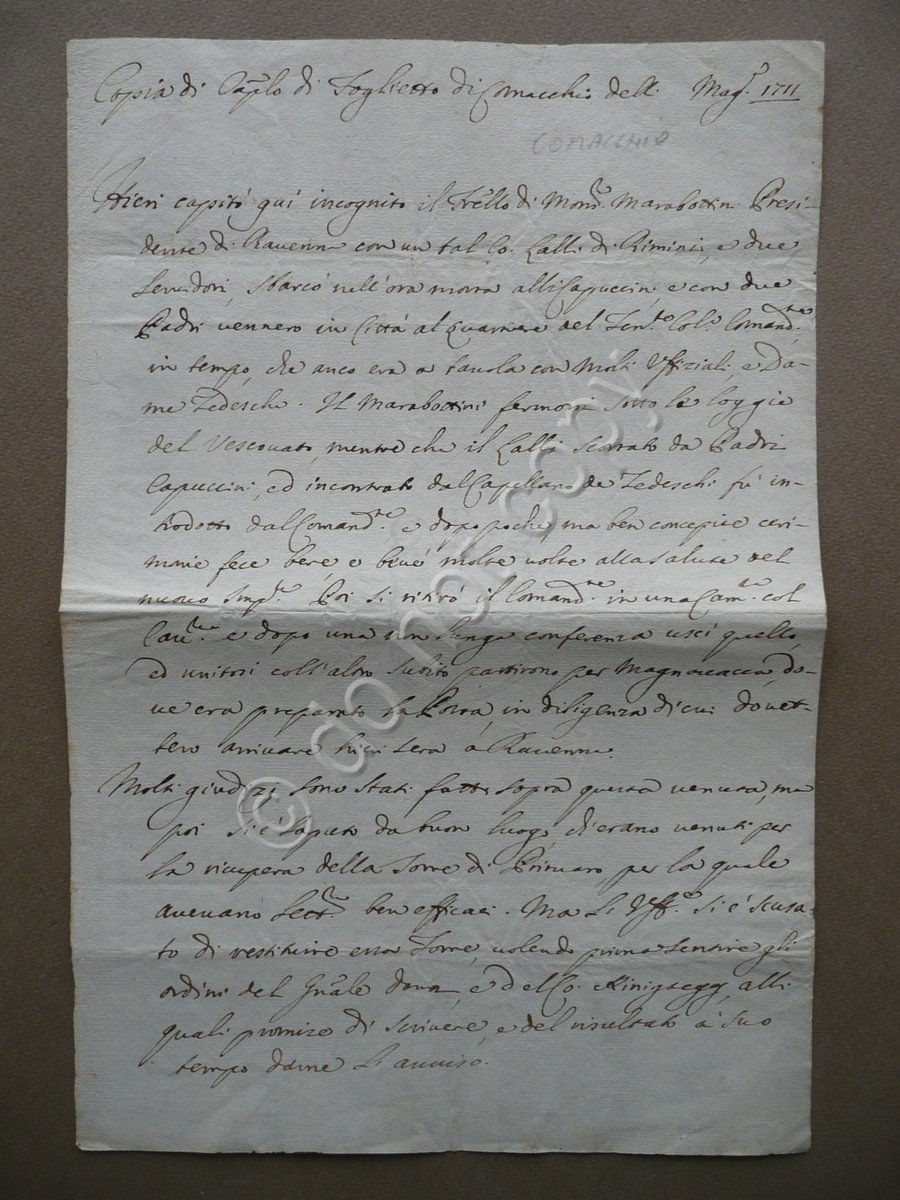 Copia di Cap.lo di Foglietto di Comacchio dell. Mag.o 1711
COMACCHIO
Hieri capitó qui incognito il Frello di Mons.r Marabottini Presi-
dente di Ravenna con un tal Co. Lalli di Rimini, e due
Servidori, sbarcó nell'ora morta alli Capuccini, e con due
Padri vennero in Cittá al Quartiere del Ten.te Col.o Comand.te
in tempo, che anco era a tauola con Molti Ufficiali, e Da-
me Tedesche. Il Marabottini fermossi sotto le loggie
del Vescouato, mentre che il Lalli scortato da Padri
Capuccini, ed incontrato dal Capellano de Tedeschi fú in-
trodotto dal Comand.te e dopo poche, ma ben concepite ceri-
monie fece bere, e bevé molte uolte alla salute del
nuouo Imp.re Poi si ritiró il Comand.te in una Cam.ra col
Cau.re e dopo una non lunga conferenza uscí quello,
ed unitosi coll'altro subito partirono per Magnauacca, do-
ue era preparata la Posta, in diligenza di cui douet-
tero arriuare hieri sera a Ravenna.
Molti giudizi sono stati fatti sopra questa uenuta, ma
poi si é saputo da buon luogo, ch'erano uenuti per
la ricupera della Torre di Primaro, per la quale
aueuano Lett.re ben efficaci. Ma Li Uff.li si é scusa-
to di restituire essa Torre, uolendo prima sentire gli
ordini del Gñale Daun, e del Co. Kinigsegg, alli
quali promise di scriuere, e del risultato á suo
tempo darne L'auuiso.
© do not copy